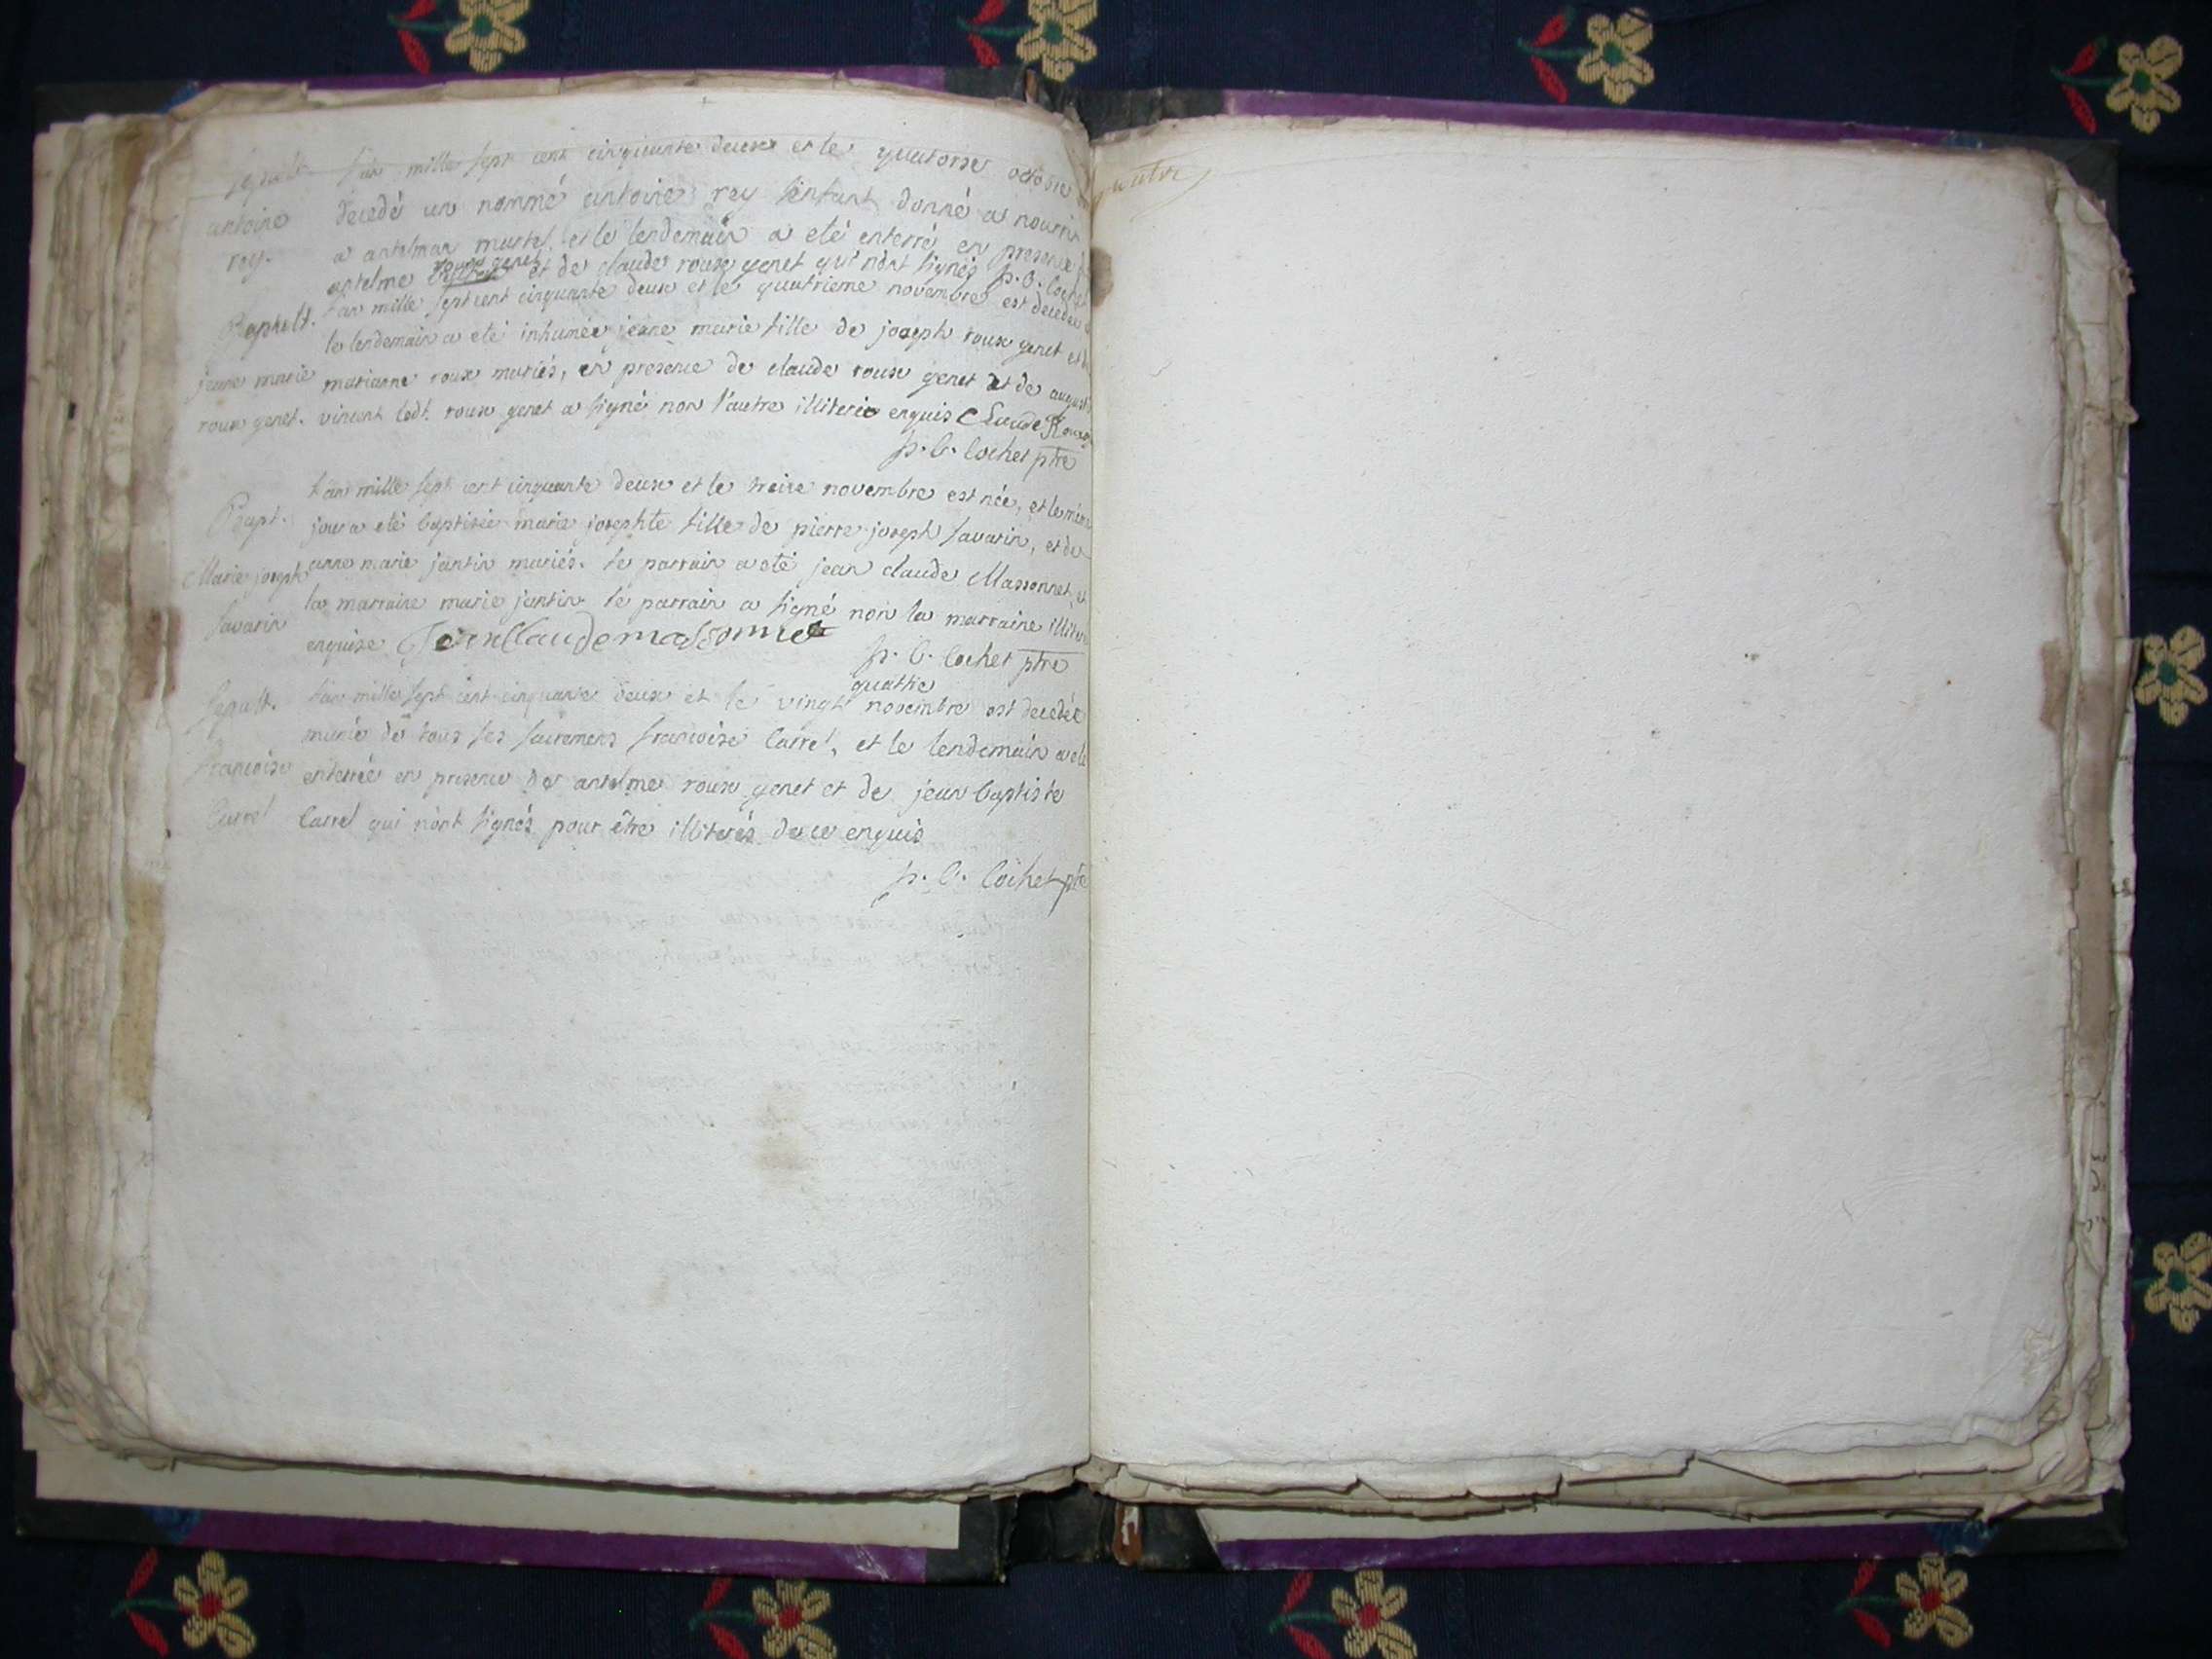 sepult. l'an mille sept cent cinquante deux et le quatorse octobre
antoine decedé un nommé antoine rey enfant donné a nourrir
rey. a antelman martel, et le lendemain a eté enterré en presence
antelme roux genet et de claude roux genet qui n'ont signés p. b. Cochet
sepult. l'an mille sept cent cinquante deux et le quatrieme novembre est decedée
le lendemain a eté inhumée jeane marie fille de joseph roux genet et de
jeane marie marianne roux mariés, en presence de claude roux genet et de august
roux genet. vincent ledt. roux genet a signé non l'autre illiteré enquis Claude Roux
p. b. Cochet ptre
l'an mille sept cent cinquante deux et le treize novembre est née, et le même
Bapt. jour a eté baptisée marie josephte fille de pierre joseph savarin, et de
Marie joseph anne marie jantin mariés. le parrain a eté jean claude Massonnet, et
savarin la marraine marie jantin. le parrain a signé non la marraine illiteré
enquise Jean Claude massonnet
p. b. Cochet ptre
quatre
sepult. l'an mille sept cent cinquante deux et le vingt novembre est decedée
munie de tous ses sacremens francoise Carrel, et le lendemain a eté
francoise enterrée en presence de antelme roux genet et de jean baptiste
Carrel Carrel qui n'ont signés pour être illiterés de ce enquis
p. b. Cochet ptre